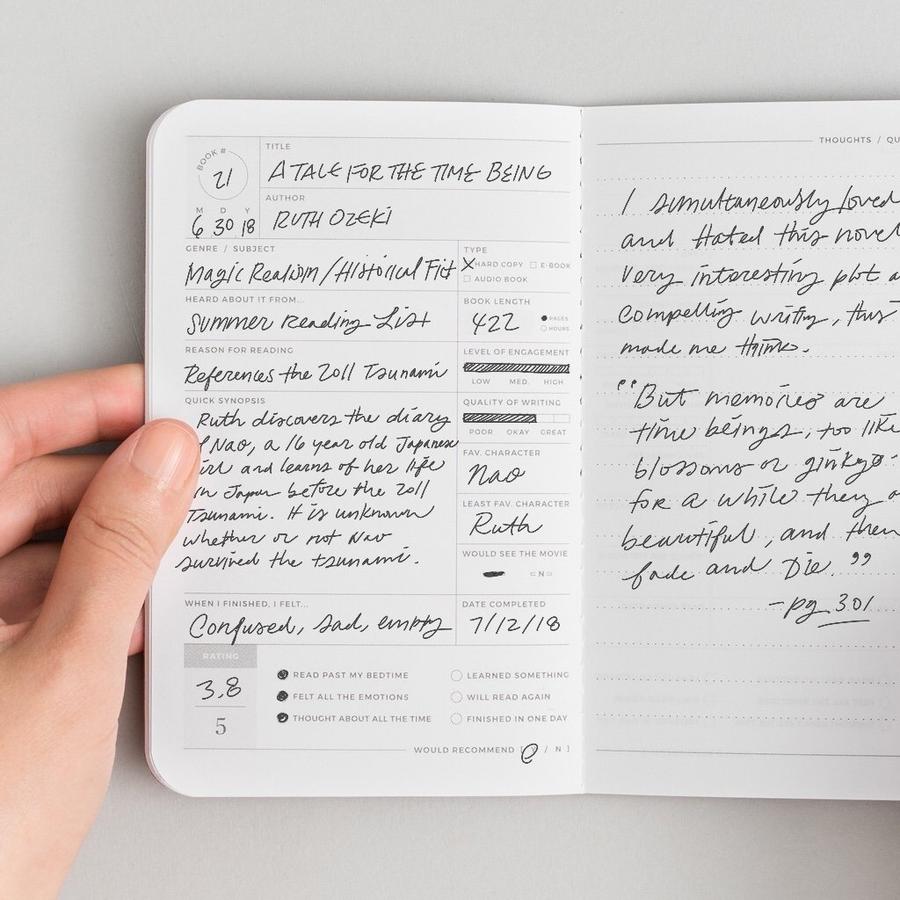 BOOK #
21
M D Y
6 30 18
TITLE
A TALE FOR THE TIME BEING
AUTHOR
RUTH OZEKI
GENRE / SUBJECT
Magic Realism / Historical Fict
TYPE
X HARD COPY E-BOOK
AUDIO BOOK
HEARD ABOUT IT FROM...
Summer Reading List
BOOK LENGTH
422
PAGES
HOURS
REASON FOR READING
References the 2011 Tsunami
LEVEL OF ENGAGEMENT
LOW MED. HIGH
QUICK SYNOPSIS
Ruth discovers the diary
Nao, a 16 year old Japanese
and learns of her life
in Japan before the 2011
Tsunami. It is unknown
whether or not Nao
survived the tsunami.
QUALITY OF WRITING
POOR OKAY GREAT
FAV. CHARACTER
Nao
LEAST FAV. CHARACTER
Ruth
WOULD SEE THE MOVIE
N
WHEN I FINISHED, I FELT...
Confused, sad, empty
DATE COMPLETED
7/12/18
RATING
3.8
5
READ PAST MY BEDTIME
FELT ALL THE EMOTIONS
THOUGHT ABOUT ALL THE TIME
LEARNED SOMETHING
WILL READ AGAIN
FINISHED IN ONE DAY
WOULD RECOMMEND [ Y / N ]
THOUGHTS / QU
I simultaneously loved
and Hated this novel
very interesting plot a
compelling writing, this
made me think.
"But memories are
time beings, too, like
blossoms or ginkgo
for a while they a
beautiful, and then
fade and Die."
-pg 301